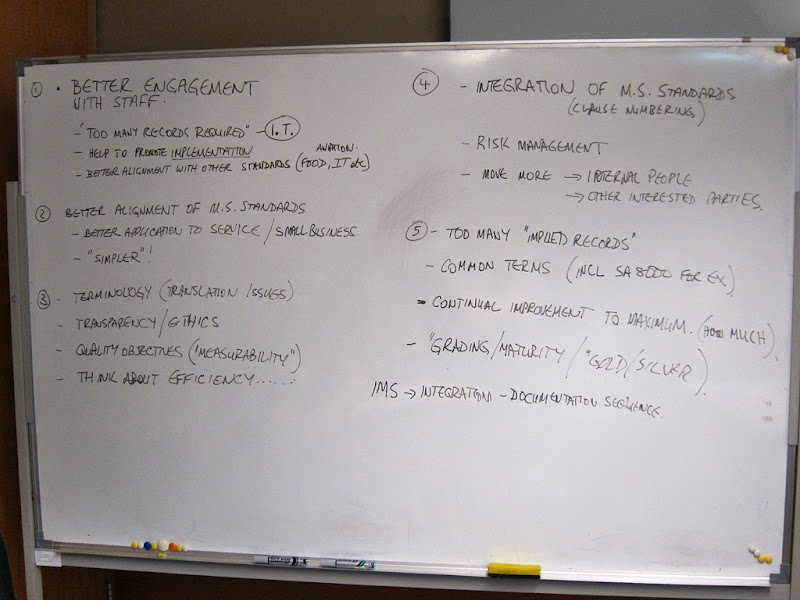 ① • BETTER ENGAGEMENT
WITH STAFF.
- "TOO MANY RECORDS REQUIRED" - I.T.
- HELP TO PROMOTE IMPLEMENTATION
AVIATION.
- BETTER ALIGNMENT WITH OTHER STANDARDS (FOOD, IT etc)
② BETTER ALIGNMENT OF M.S. STANDARDS
- BETTER APPLICATION TO SERVICE / SMALL BUSINESS
- "SIMPLER"!
③ - TERMINOLOGY (TRANSLATION ISSUES)
- TRANSPARENCY / ETHICS
- QUALITY OBJECTIVES ("MEASURABILITY")
- THINK ABOUT EFFICIENCY......
④ - INTEGRATION OF M.S. STANDARDS
(CLAUSE NUMBERING)
- RISK MANAGEMENT
- MOVE MORE → INTERNAL PEOPLE
→ OTHER INTERESTED PARTIES.
⑤ - TOO MANY "IMPLIED RECORDS"
- COMMON TERMS (INCL SA 8000 FOR EX)
- CONTINUAL IMPROVEMENT TO MAXIMUM. (HOW MUCH).
- "GRADING / MATURITY / "GOLD / SILVER).
IMS → INTEGRATION - DOCUMENTATION SEQUENCE.